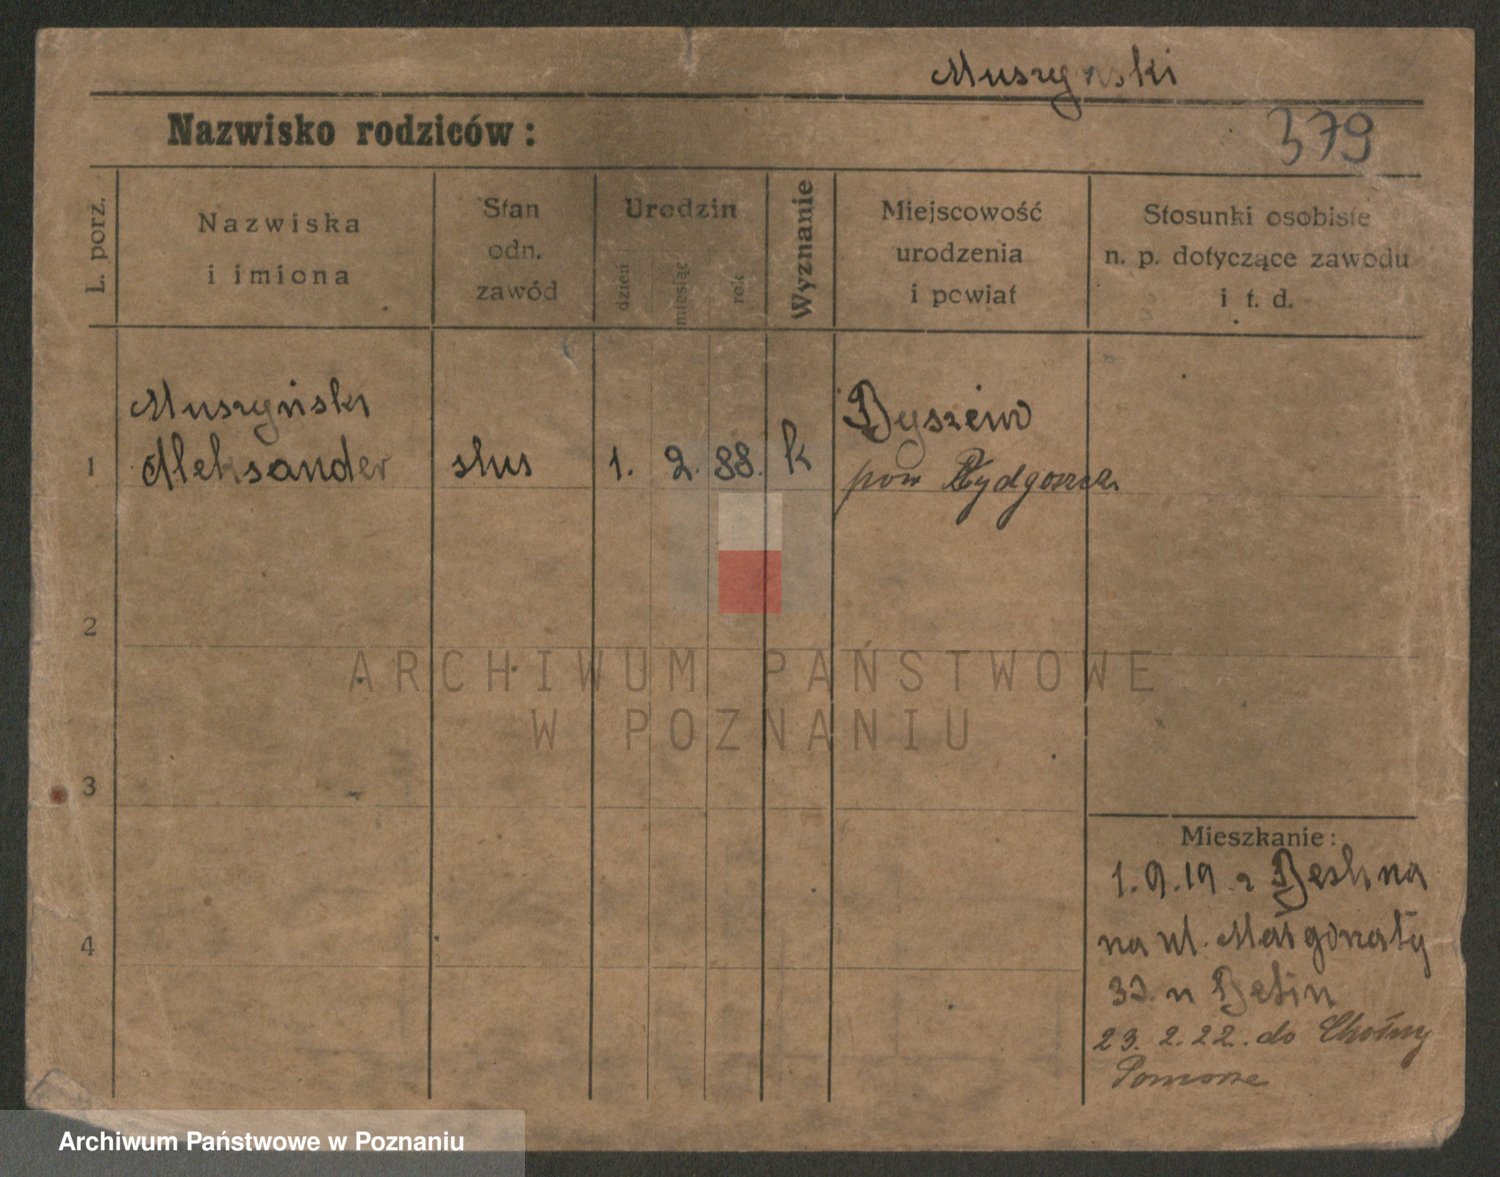 Muszynski
Nazwisko rodziców:
379
L. porz.
Nazwiska
i imiona
Stan
odn.
zawód
Urodzin
dzień
miesiąc
rok
Wyznanie
Miejscowość
urodzenia
i powiat
Stosunki osobiste
n. p. dotyczące zawodu
i t. d.
Muszyński
Aleksander
1
slus
1. 2. 88.
k
Byszewo
pow Bydgoszcz
2
3
4
Mieszkanie:
1.9.19 z
na ul. Małgorzaty
23. 2. 22. do
Pomorze
ARCHIWUM PAŃSTWOWE
W POZNANIU
Archiwum Państwowe w Poznaniu